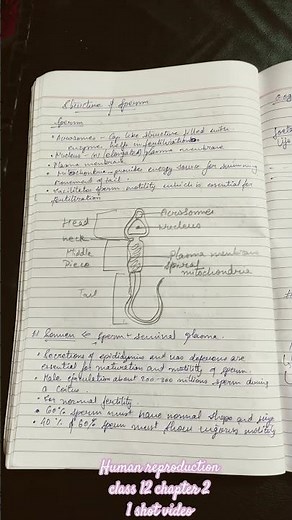 Structure of sperm
Sperm
• Acrosomes - Cap like structure filled with
enzyme, help in fertilization
• Nucleus - (elongated) plasma membrane
• Plasma membrane
• Mitochondria - provides energy source for swimming
movement of tail
• Facilitates sperm motility which is essential for
fertilization
Head
Acrosomes
Nucleus
neck
Middle
Piece
Plasma membrane
Spiral
mitochondria
Tail
Semen ← sperm + seminal plasma
• Secretions of epididymis and vas deferens are
essential for maturation and motility of sperm.
• Male ejaculation about 200-300 millions sperm during
a coitus
• For normal fertility
• 60% sperm must have normal shape and size
• 40% of 60% sperm must show vigorous motility
Human reproduction
class 12 chapter 2
1 shot video